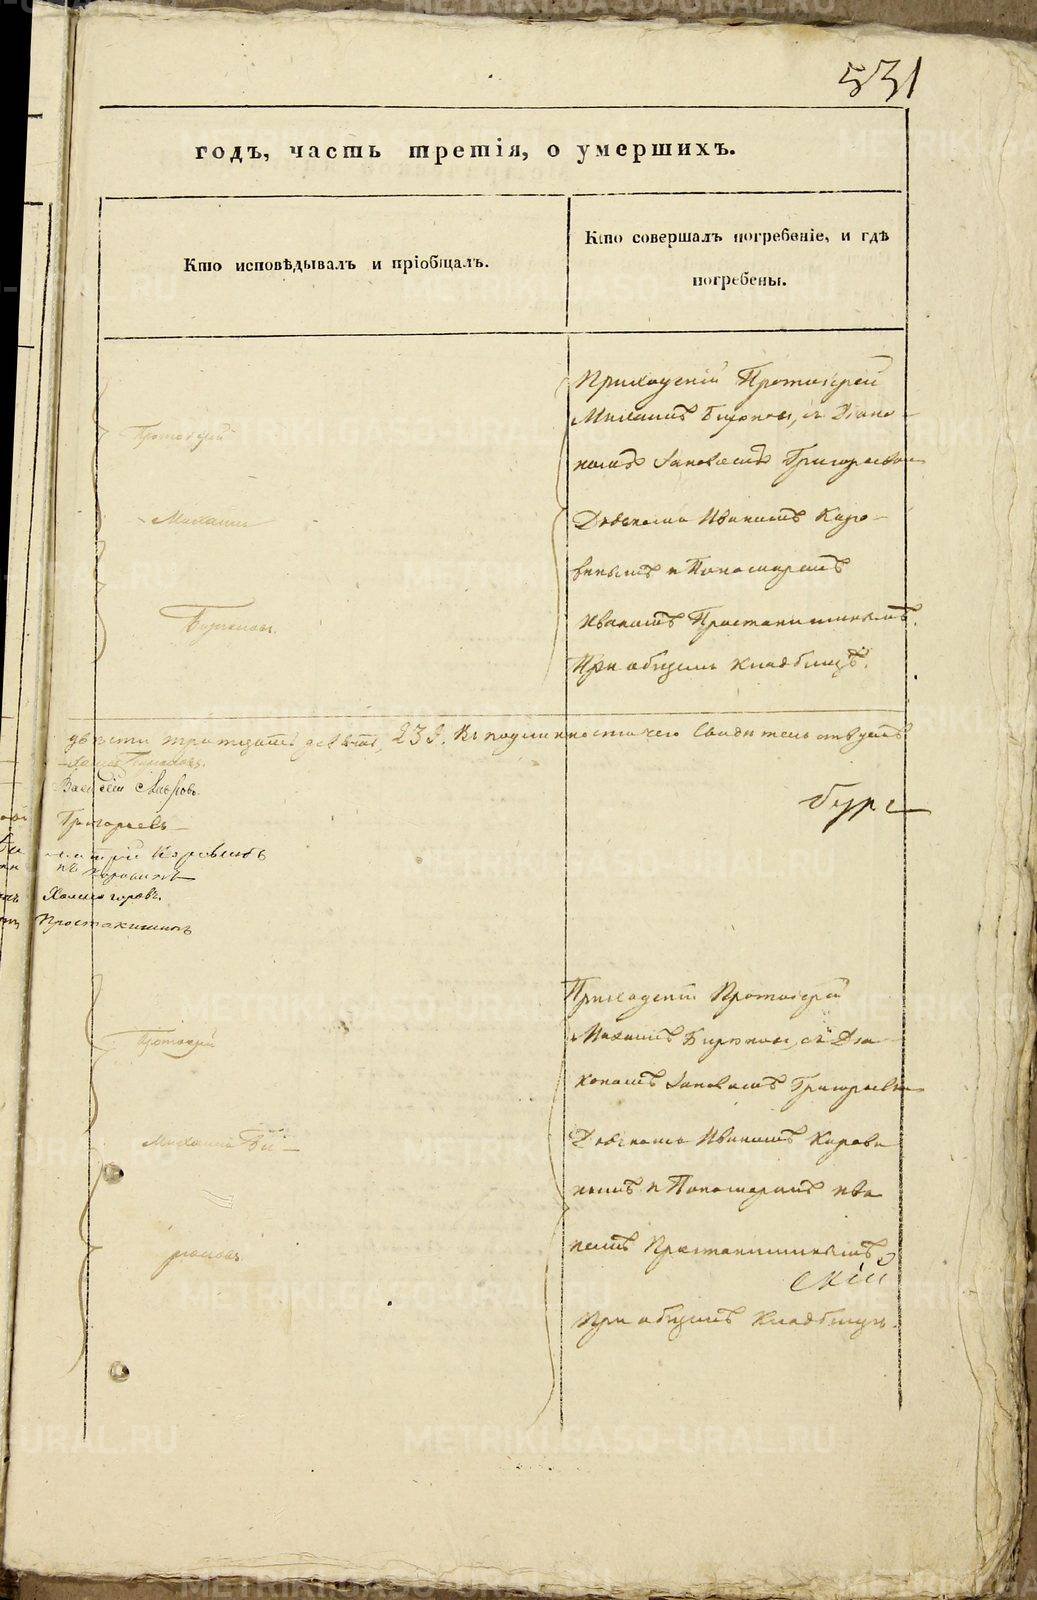 531
годъ, часть третія, о умершихъ.
Кто исповѣдывалъ и пріобщалъ.
Кто совершалъ погребеніе, и гдѣ
погребены.
Протоіерей
Михаилъ
Приходскій Протоіерей
Михаилъ Бирюковъ, съ Діако-
номъ Іаковомъ Григорьевымъ
Дьячкомъ Иваномъ Каро-
винымъ и Пономаремъ
Иваномъ Простакишинымъ.
При общемъ кладбищѣ.
двѣсти тритцать девять, 239. Въ подлинности чего Свидѣтельствуетъ
Василій
Григорьевъ
Коровинъ
Холмогоровъ.
Простакишинъ
бург
Протоіерей
Михаилъ Би-
рюковъ
Приходскій Протоіерей
Михаилъ Бирюковъ, съ Діа-
кономъ Іаковомъ Григорьевымъ
Дьячкомъ Иваномъ Карови
нымъ и Пономаремъ Ива
номъ Простакишинымъ
скій
При общемъ Кладбищѣ.
METRIKI.GASO-URAL.RU